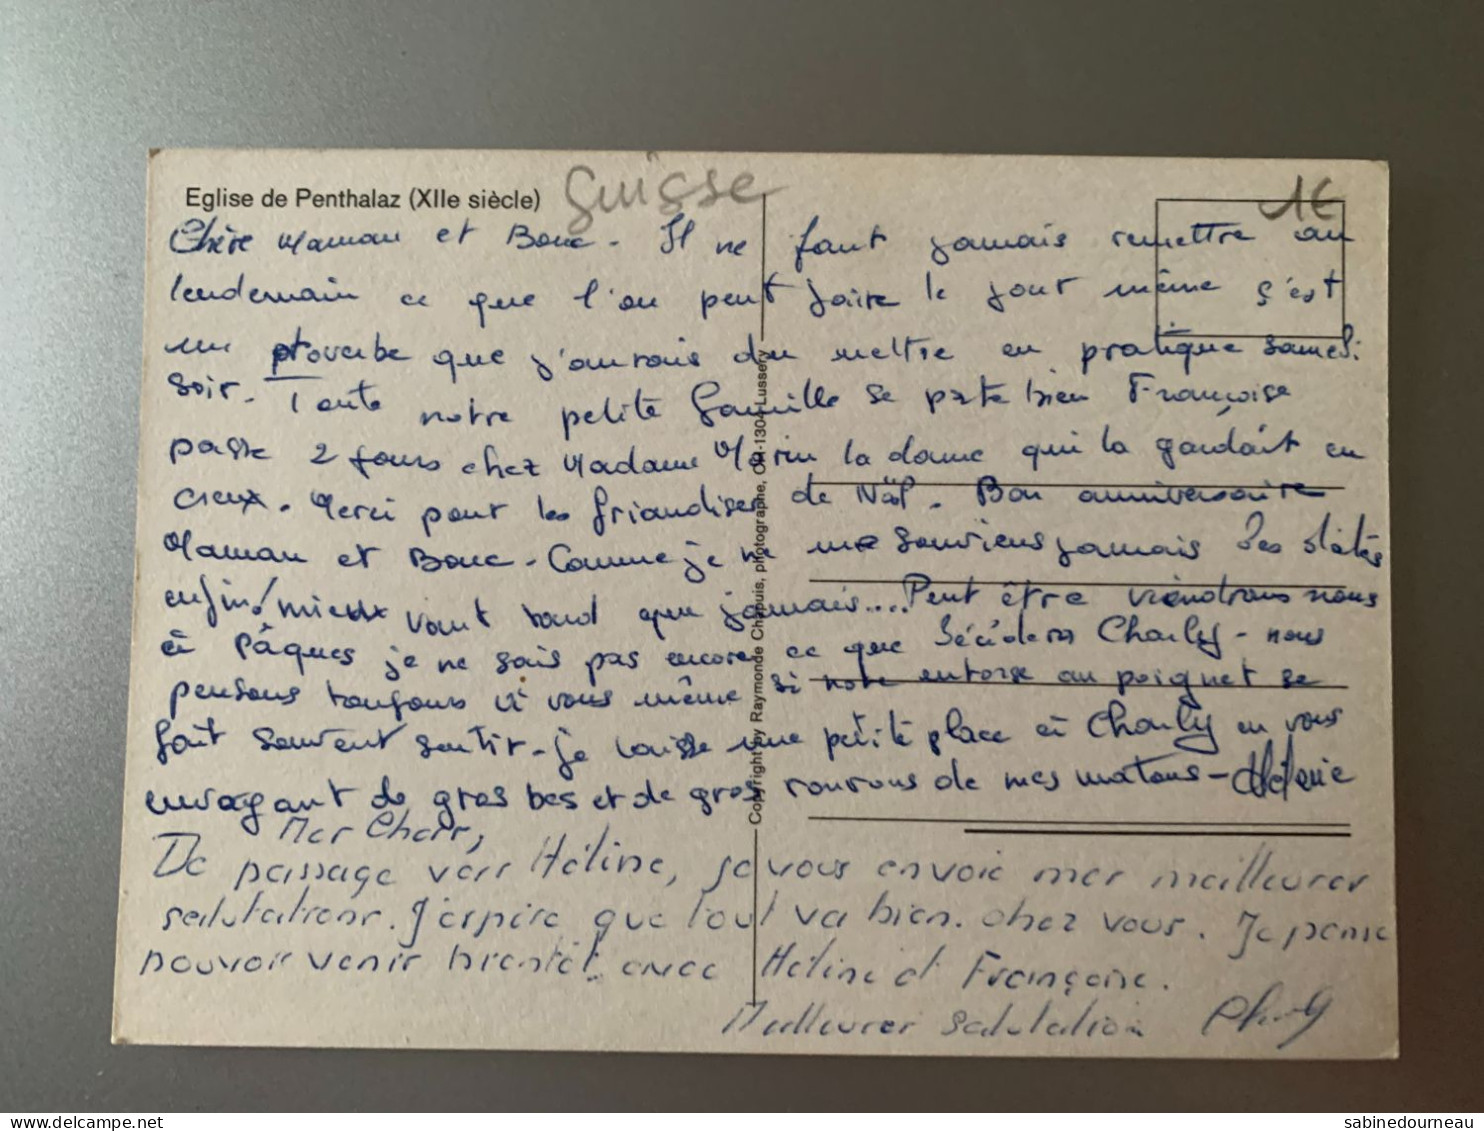 Eglise de Penthalaz (XIIe siècle)
Suisse
1€
Chère Maman et Bouc - Il ne faut jamais remettre au
lendemain ce que l'on peut faire le jour même ç'est
un proverbe que j'aurais du mettre en pratique samedi
soir. Toute notre petite famille se porte bien Françoise
passe 2 jours chez Madame Morin la dame qui la gardait en
creux. Merci pour les friandises de Nöl. Bon anniversaire
Maman et Bouc - Comme je ne me souviens jamais des dates
enfin! mieux vaut tard que jamais.... Peut être viendrons nous
à Pâques je ne sais pas encore ce que décidera Charly - nous
pensons toujours à vous même si notre entorse au poignet se
fait souvent sentir - je laisse une petite place à Charly en vous
envoyant de gros bes et de gros ronrons de mes matous - Hélène
Mes Chers,
De passage vers Hélène, je vous envoie mes meilleures
salutations. J'espère que tout va bien chez vous. Je pense
pouvoir venir bientôt avec Hélène et Françoise.
Meilleures salutation Charly
Copyright by Raymonde Chapuis, photographe, CH-1304 Lussery
sabinedourneau